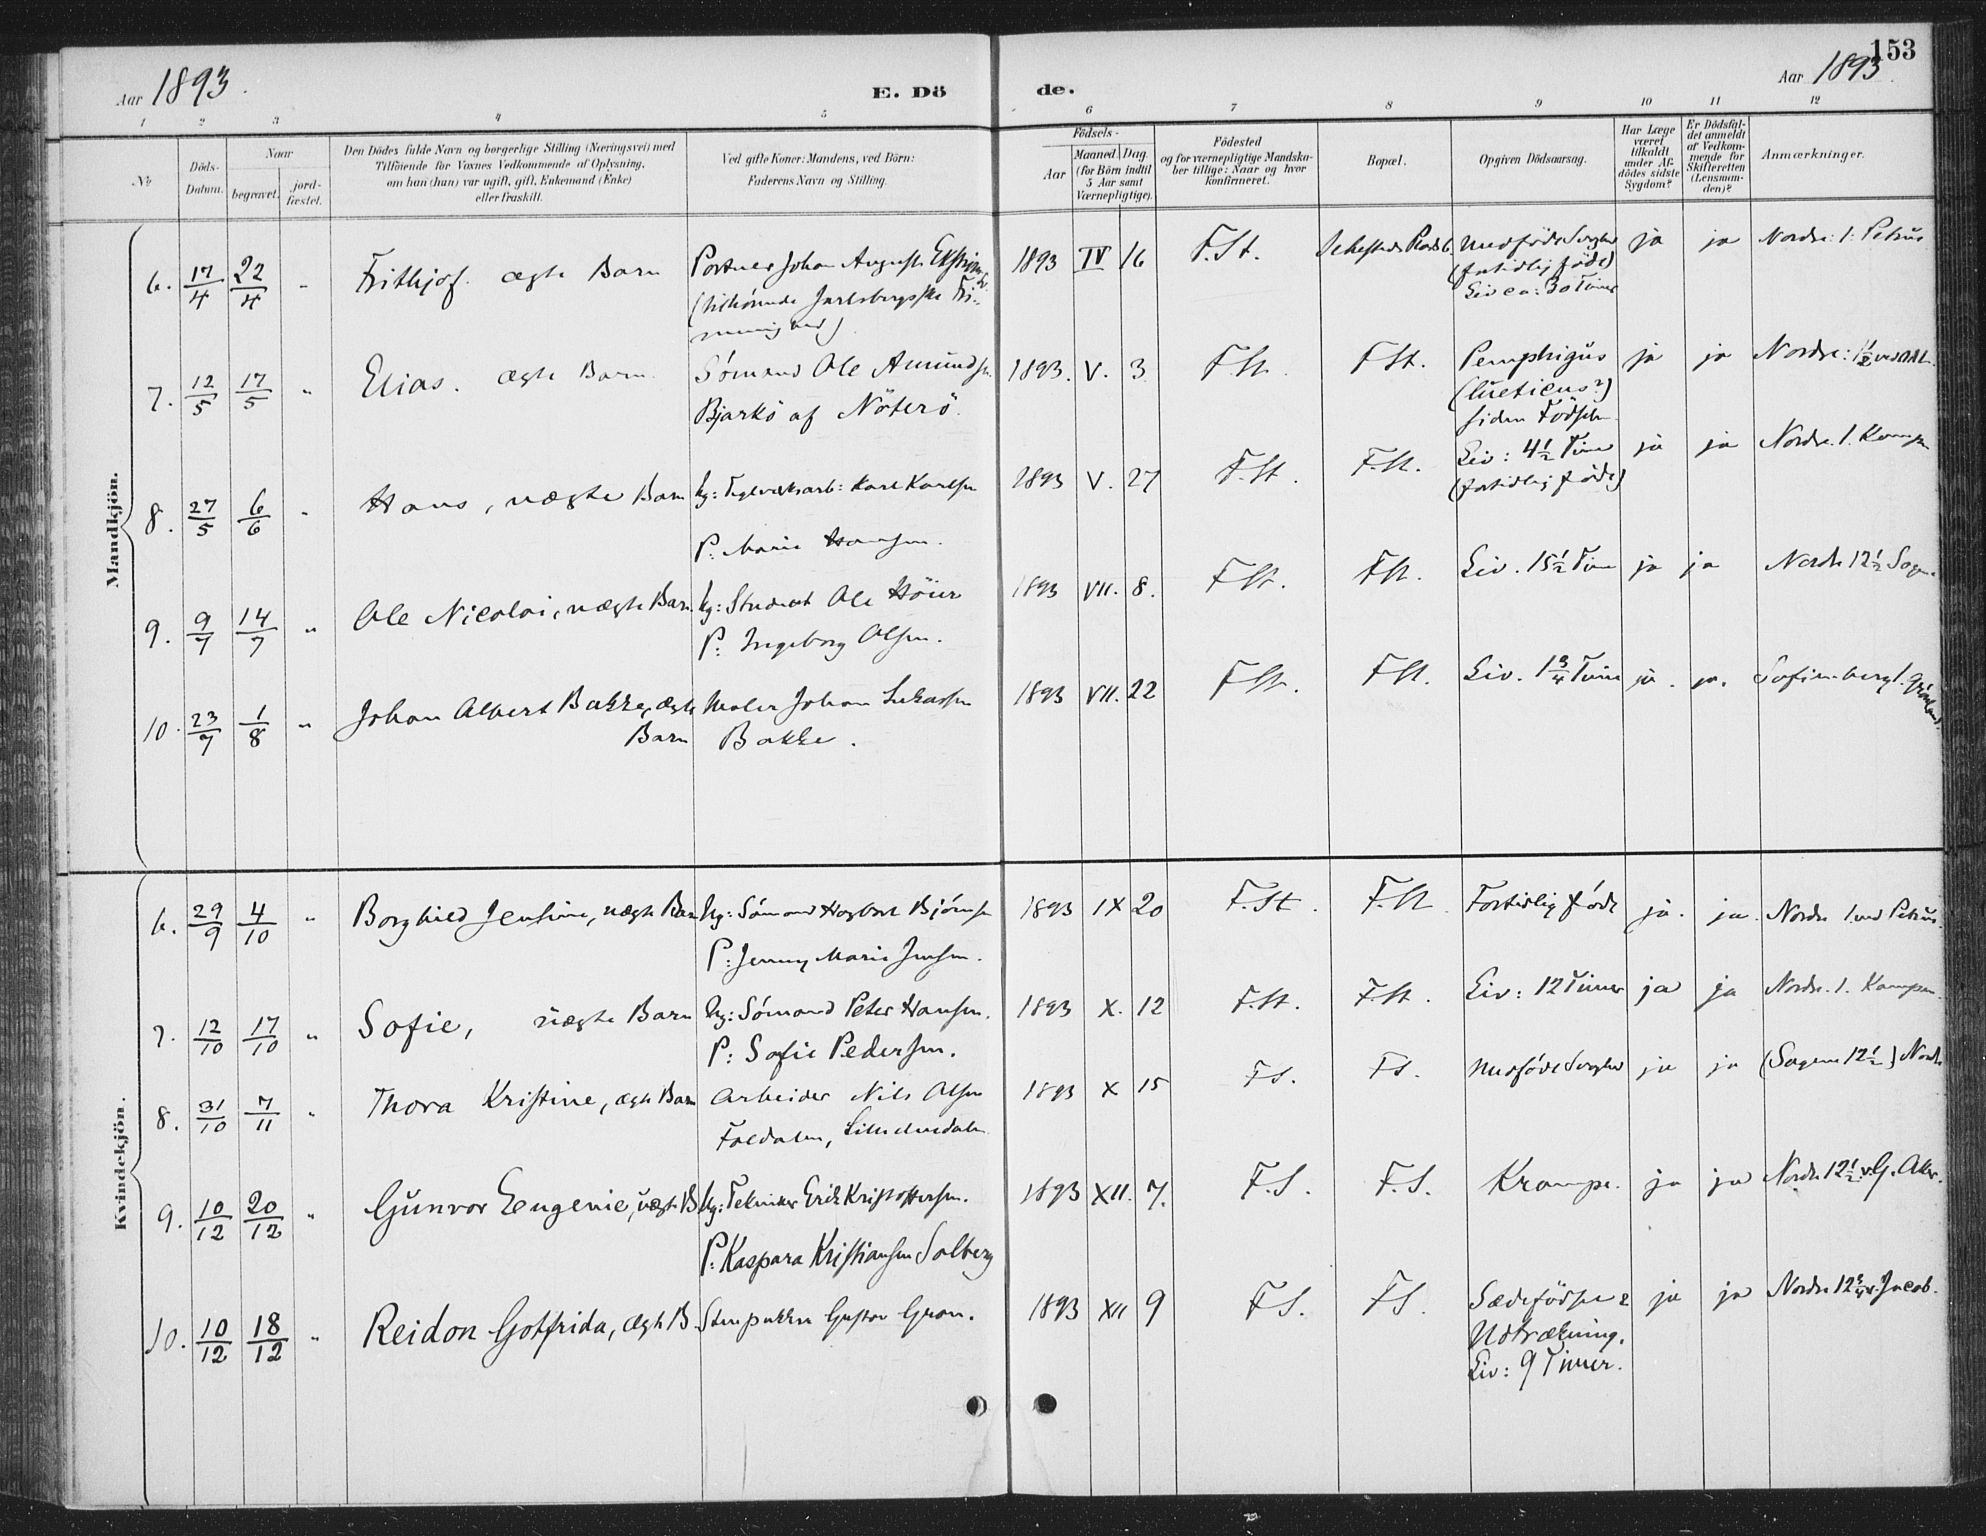 153
Aar 1893.
E. Dö
de.
Aar 1893.
1 2 3 4 5 6 7 8 9 10 11 12
№
Döds-
Datum.
Naar
begravet.
jord-
fæstet.
Den Dödes fulde Navn og borgerlige Stilling (Næringsvei) med
Tilföiende for Voxnes Vedkommende af Oplysning,
om han (hun) var ugift, gift, Enkemand (Enke)
eller fraskilt.
Ved gifte Koner: Mandens, ved Börn:
Faderens Navn og Stilling.
Födsels-
Aar
Maaned Dag
(for Börn indtil
5 Aar samt
Værnepligtige).
Födested
og for værnepligtige Mandska-
ber tillige: Naar og hvor
konfirmeret.
Bopæl.
Opgiven Dödsaarsag.
Har Læge
været
tilkaldt
under Af-
dödes sidste
Sygdom?
Er Dödsfal-
det anmeldt
af Vedkom-
mende for
Skifteretten
(Lensman-
den)?
Anmærkninger.
Mandkjön.
6. 17/4 22/4 - Frithjof. ægte Barn Portner Johan August 1893 IV 16 F.St. Medfødt Svaghed ja ja Nordre: 1: Petrus
(fortidlig født)
Liv ca: 30 Timer
7. 12/5 17/5 " Elias. ægte Barn Sömand Ole Amundsen 1893. V. 3 F.St. F.St. Pemphigus ja ja Nordre: 1½
Bjarkö af Nöterö. (lueticus?)
siden Födselen
8. 27/5 6/6 " Hans, uægte Barn Ug: Teglværksarb: Karl Karlsen 1893 V. 27 F.St. F.St. Liv: 4½ Time ja ja Nordre. 1. Kampen
(fortidlig født)
P: Marie Hansen.
9. 9/7 14/7 " Ole Nicolai, uægte Barn. Ug: Student Ole Höier 1893 VII. 8. F.St. F.St. Liv. 15½ Time ja ja Nordre 12½ Sagene
P: Ingeborg Olsen.
10. 23/7 1/8 " Johan Albert Bakke, ægte Maler Johan 1893 VII. 22 F.St. F.St. Liv. 1¾ Time ja. ja. Sofienberg 1. Grönland.
Barn Bakke.
Kvindekjön.
6. 29/9 4/10 " Borghild Jensine, uægte Barn Ug: Sömand Hagbart Bjørnsen 1893 IX 20 F.St. F.St. Fortidlig født ja. ja. Nordre 1. ved Petrus.
P: Jenny Marie Jensen.
7. 12/10 17/10 " Sofie, uægte Barn Ug: Sömand Peter Hansen. 1893 X. 12 F.St. F.St. Liv: 12 Timer ja ja Nordre. 1. Kampen.
P: Sofie Pedersen.
8. 31/10 7/11 " Thora Kristine, ægte Barn Arbeider Nils Olsen 1893 X 15 F.S. F.S. Medfødt Svaghed ja ja (Sagene 12½) Nordre
Foldalen, Lilleelvedalen
9. 10/12 20/12 " Gunvor Eugenie, uægte B. Ug: Tekniker Erik Kristoffersen. 1893 XII. 7. F.S. F.S. Krampe. ja ja Nordre 12½ v. G. Aker.
P. Kaspara Kristiansen Solberg
10. 10/12 18/12 " Reidon Gotfrida, ægte B. Stenpukker Gustav Gran. 1893 XII 9 F.S. F.S. Sædefödsel & ja ja Nordre 12¾ v. Jacob.
Udtrækning.
Liv: 9 Timer.